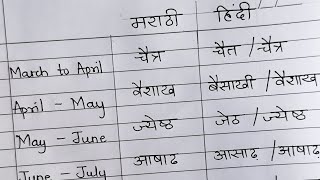 मराठी हिंदी
March to April चैत्र चैत / चैत्र
April - May वैशाख बैसाखी / वैशाख
May - June ज्येष्ठ जेठ / ज्येष्ठ
June - July आषाढ आसाढ़ / आषाढ़